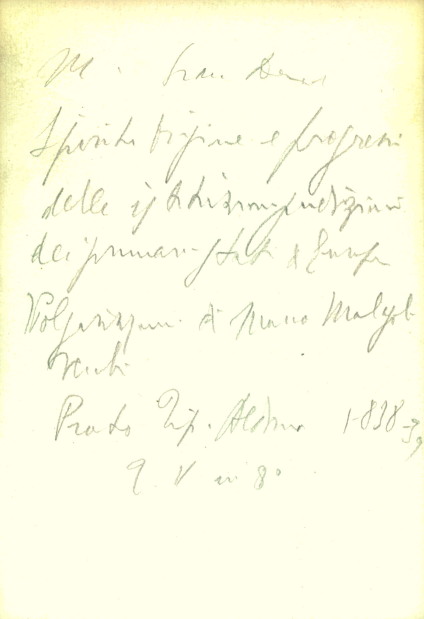 M.
Spirito Origine e progressi
delle istituzioni giudiziarie
dei primari Stati d'Europa
Volgarizzam. di Marco Malagoli
Vecchi
Prato Tip. Aldina 1838-39
9 V in 8°